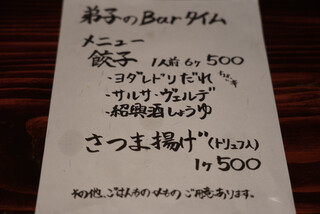 弟子のBarタイム
メニュー
餃子 1人前6ヶ 500
・ヨダレドリだれ
・サルサ・ヴェルデ
・紹興酒しょうゆ
さつま揚げ(トリュフ入)
1ヶ 500
その他、ごはんもの ご用意あります。